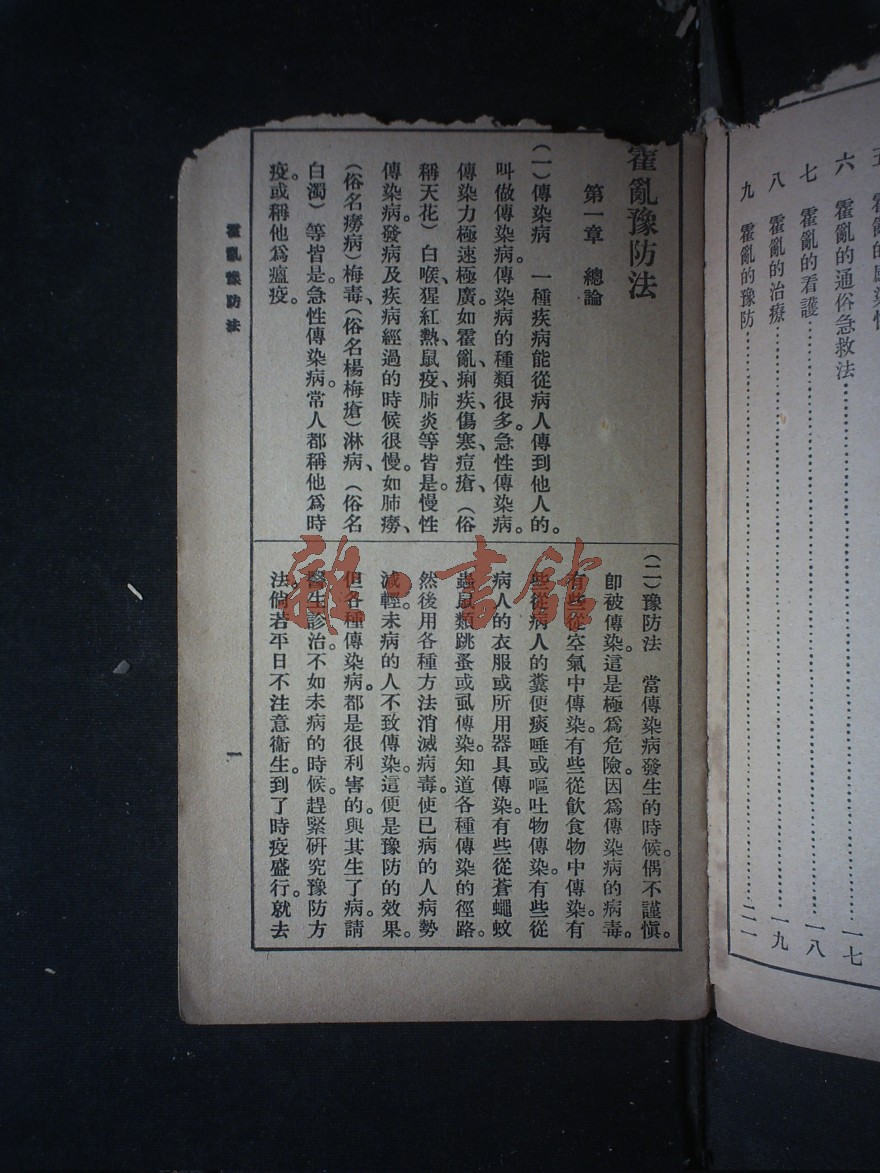 霍亂的
六　霍亂的通俗急救法……………一七
七　霍亂的看護……………一八
八　霍亂的治療……………一九
九　霍亂的豫防……………二一
霍亂豫防法
第一章　總論
(一)傳染病　一種疾病能從病人傳到他人的。
叫做傳染病。傳染病的種類很多。急性傳染病。
傳染力極速極廣。如霍亂、痢疾、傷寒、痘瘡、(俗
稱天花)白喉、猩紅熱、鼠疫、肺炎等皆是。慢性
傳染病。發病及疾病經過的時候很慢。如肺癆、
(俗名癆病)梅毒、(俗名楊梅瘡)淋病、(俗名
白濁)等皆是。急性傳染病。常人都稱他爲時
疫。或稱他爲瘟疫。
(二)豫防法　當傳染病發生的時候。偶不謹愼。
卽被傳染。這是極爲危險。因爲傳染病的病毒。
有些從空氣中傳染。有些從飲食物中傳染。有
些從病人的糞便痰唾或嘔吐物傳染。有些從
病人的衣服或所用器具傳染。有些從蒼蠅蚊
蟲鼠類跳蚤或虱傳染。知道各種傳染的徑路。
然後用各種方法消滅病毒。使已病的人病勢
減輕。未病的人不致傳染。這便是豫防的效果。
但各種傳染病。都是很利害的。與其生了病。請
醫生診治。不如未病的時候。趕緊硏究豫防方
法。倘若平日不注意衞生。到了時疫盛行。就去
霍亂豫防法
一
雜·書館